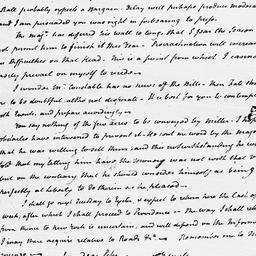 Ball probably expects a Bargain. Delay will perhaps produce moderation
and I am persuaded you was right in forbearing to press.
The majr. has defered his wall so long, that I fear the Season
not permit him to finish it this Year. Procrastination will increase
our Difficulties on that Head. This is a point from which I cannot
easily prevail on myself to recede.
I wonder Mr. Constable has no news of the Mills. Their Fate then
to be doubtful altho not desperate. It is best for you to contemplate
both Events, and prepare accordingly.
You say nothing of the few acres to be conveyed by Mills. I hope
obstacles have intervened to prevent it. He sent me word by the Major
that he was willing to sell them and this notwithstanding he was
told that my letting him have the money was not with that view
but on the contrary that he should consider himself as being
perfectly at liberty to do therein as he pleased.
I shall go next Tuesday to Exeter, & expect to return here the last of
week, after which I shall proceed to Providence. The way I shall return
from thence to new York is uncertain, and will depend on the Information
I may there acquire relative to Roads &c. Remember me to
dear